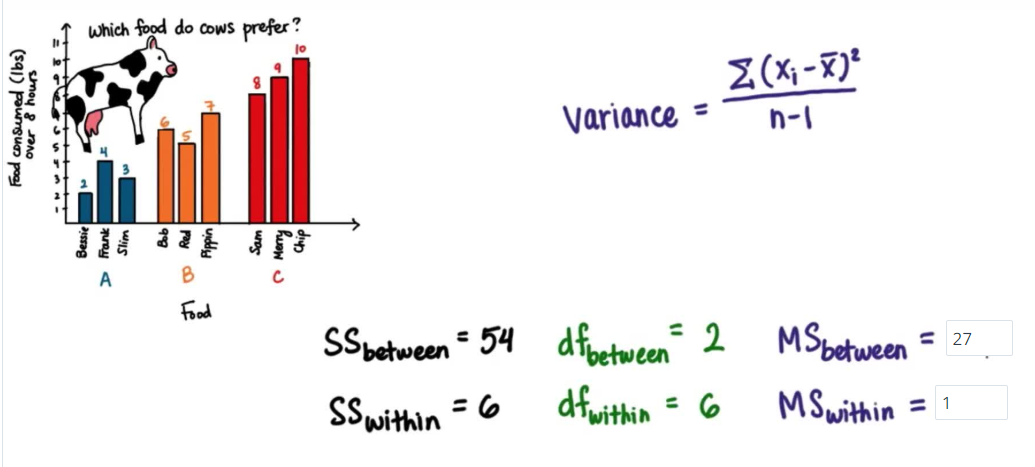 Which food do cows prefer?
Food consumed (lbs)
over 8 hours
11
10
9
8
7
6
5
4
3
2
1
2
4
3
6
5
7
8
9
10
Bessie
Frank
Slim
Bob
Red
Pippin
Sam
Merry
Chip
A
B
C
Food
Variance = Σ(xᵢ-x̄)²
n-1
SSbetween = 54 dfbetween = 2 MSbetween = 27
SSwithin = 6 dfwithin = 6 MSwithin = 1